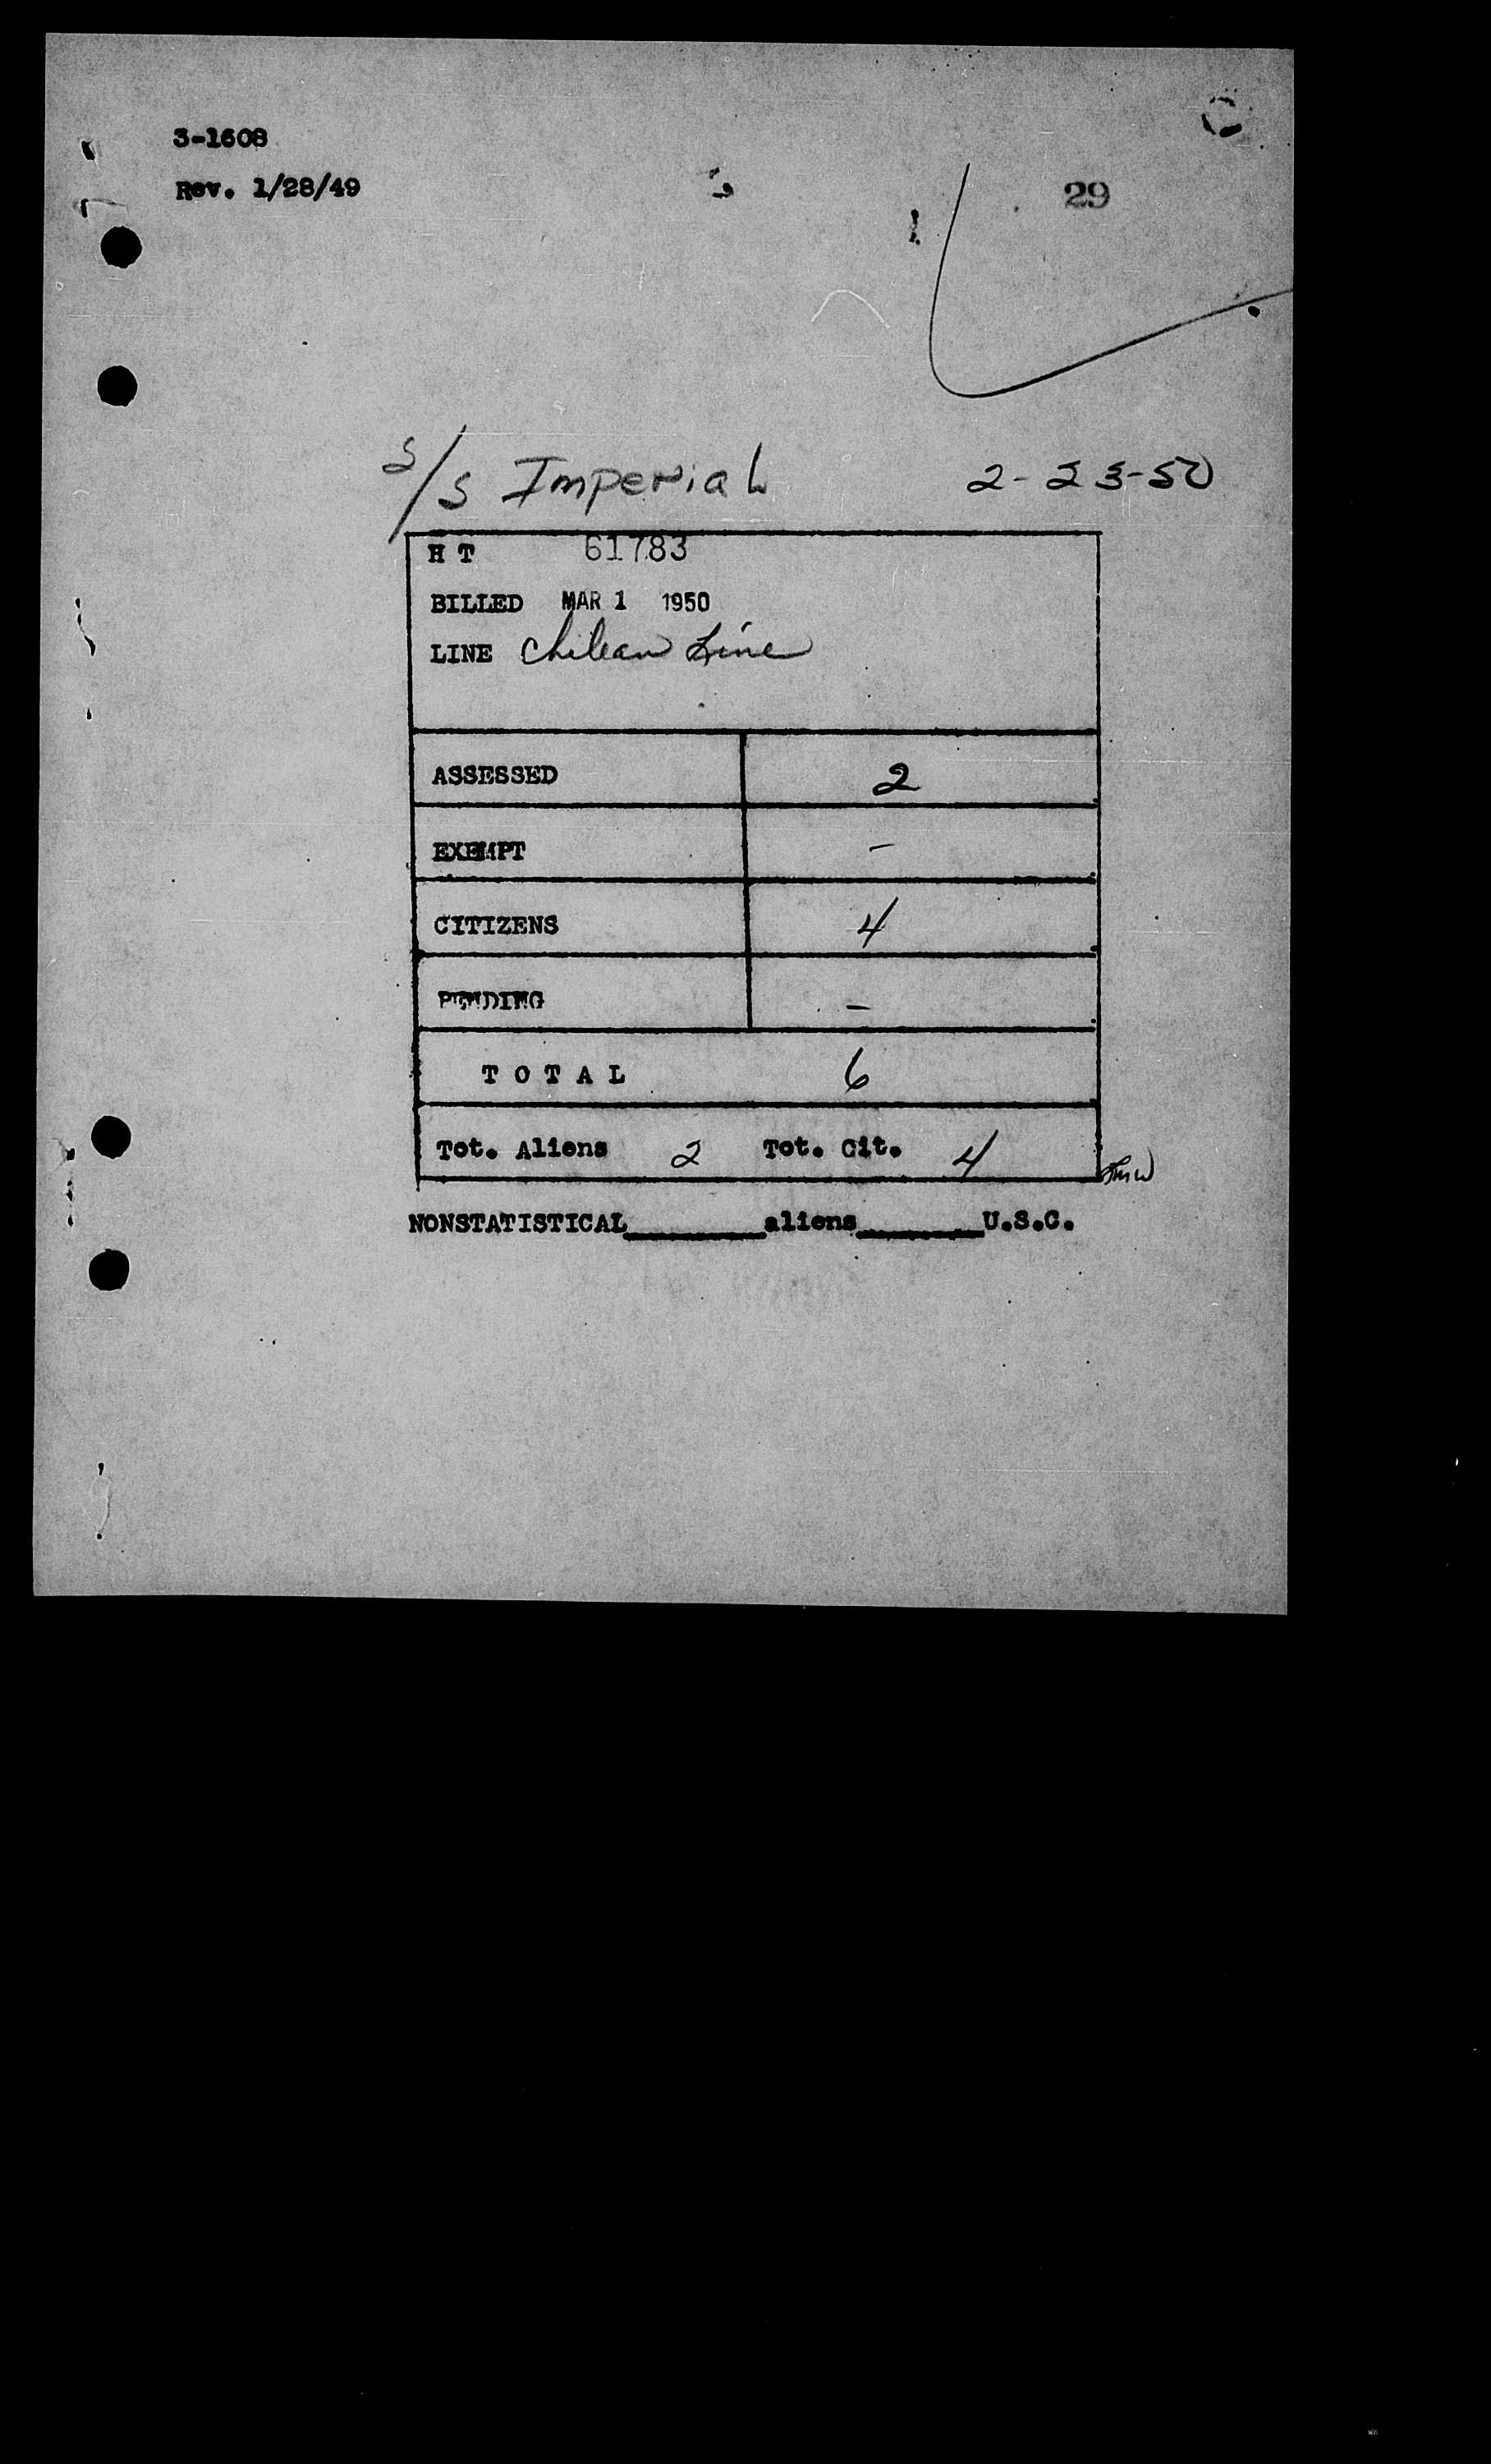 3-1608
Rev. 1/28/49
29
S/S Imperial 2-23-50
H T 61783
BILLED MAR 1 1950
LINE Chilean Line
ASSESSED 2
EXEMPT -
CITIZENS 4
PENDING -
T O T A L 6
Tot. Aliens 2 Tot. Cit. 4
NONSTATISTICAL________aliens________U.S.C.